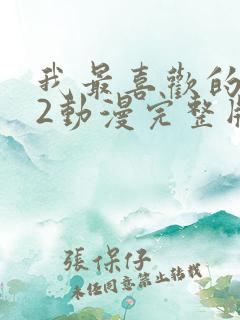 我最喜歡的
2動漫完整版
張保仔
未經同意禁止轉載